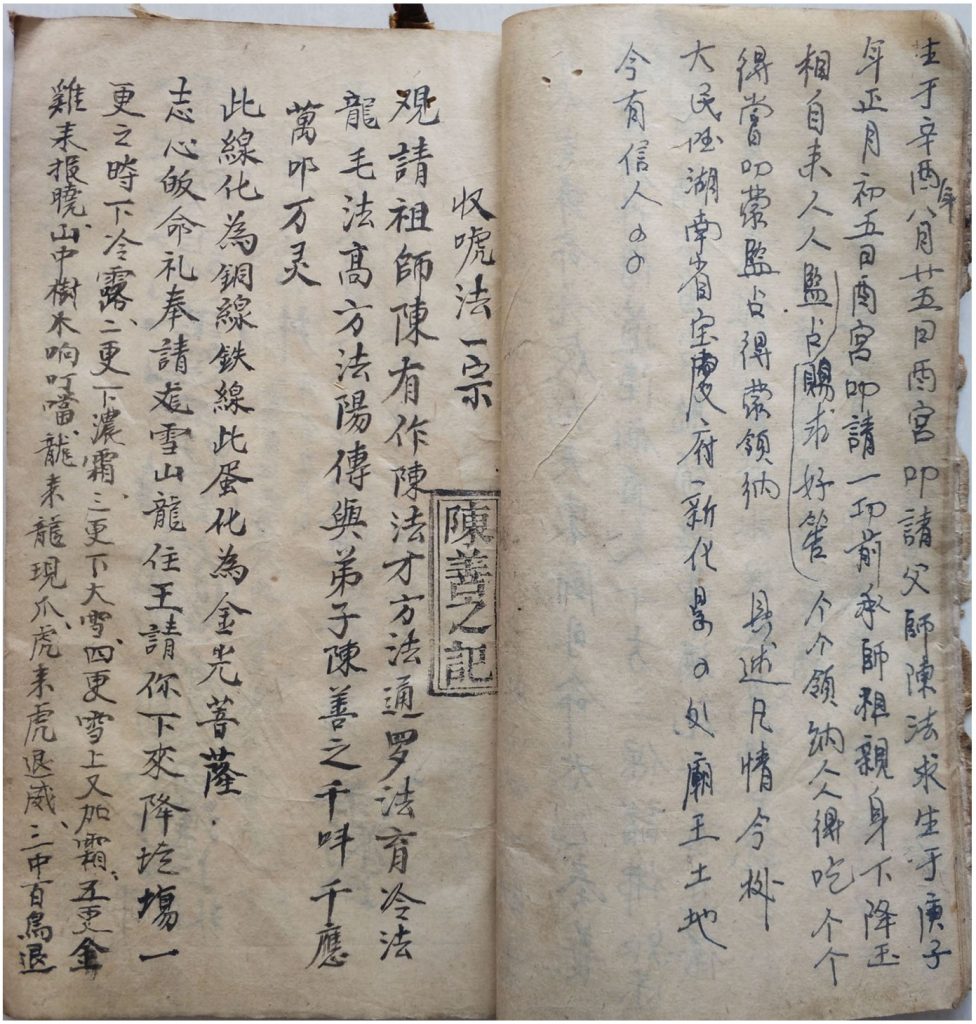 生于辛酉年八月廿五日酉宮叩請父師陳法求生于庚子
年正月初五日酉宮叩請一切前承師祖親身下降玉
相自来人人監占賜求好筶个个領納人人得吃个个
得嘗叩蒙監占得蒙領納 具述凡情今據
大民国湖南省宝慶府新化县
处廟王土地
今有信人
陳善之記
收唬法一宗
观請祖師陳有作陳法才方法通罗法育冷法
龍毛法高方法陽傳與弟子陳善之千叫千應
萬叩万灵
此線化為銅線鉄線此蛋化為金光菩薩
志心皈命礼奉請雪山龍住王請你下來降坛場一
更之時下冷露二更下濃霜三更下大雪四更雪上又加霜五更金
雞来报曉山中樹木响叮噹龍来龍現爪虎来虎退威三中百鳥退